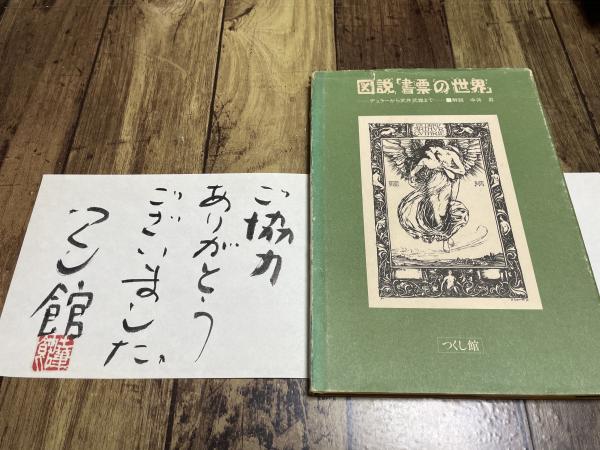 ご協力
ありがとう
ございました。
つくし館
図説「書票の世界」
デューラーから武井武雄まで
つくし館